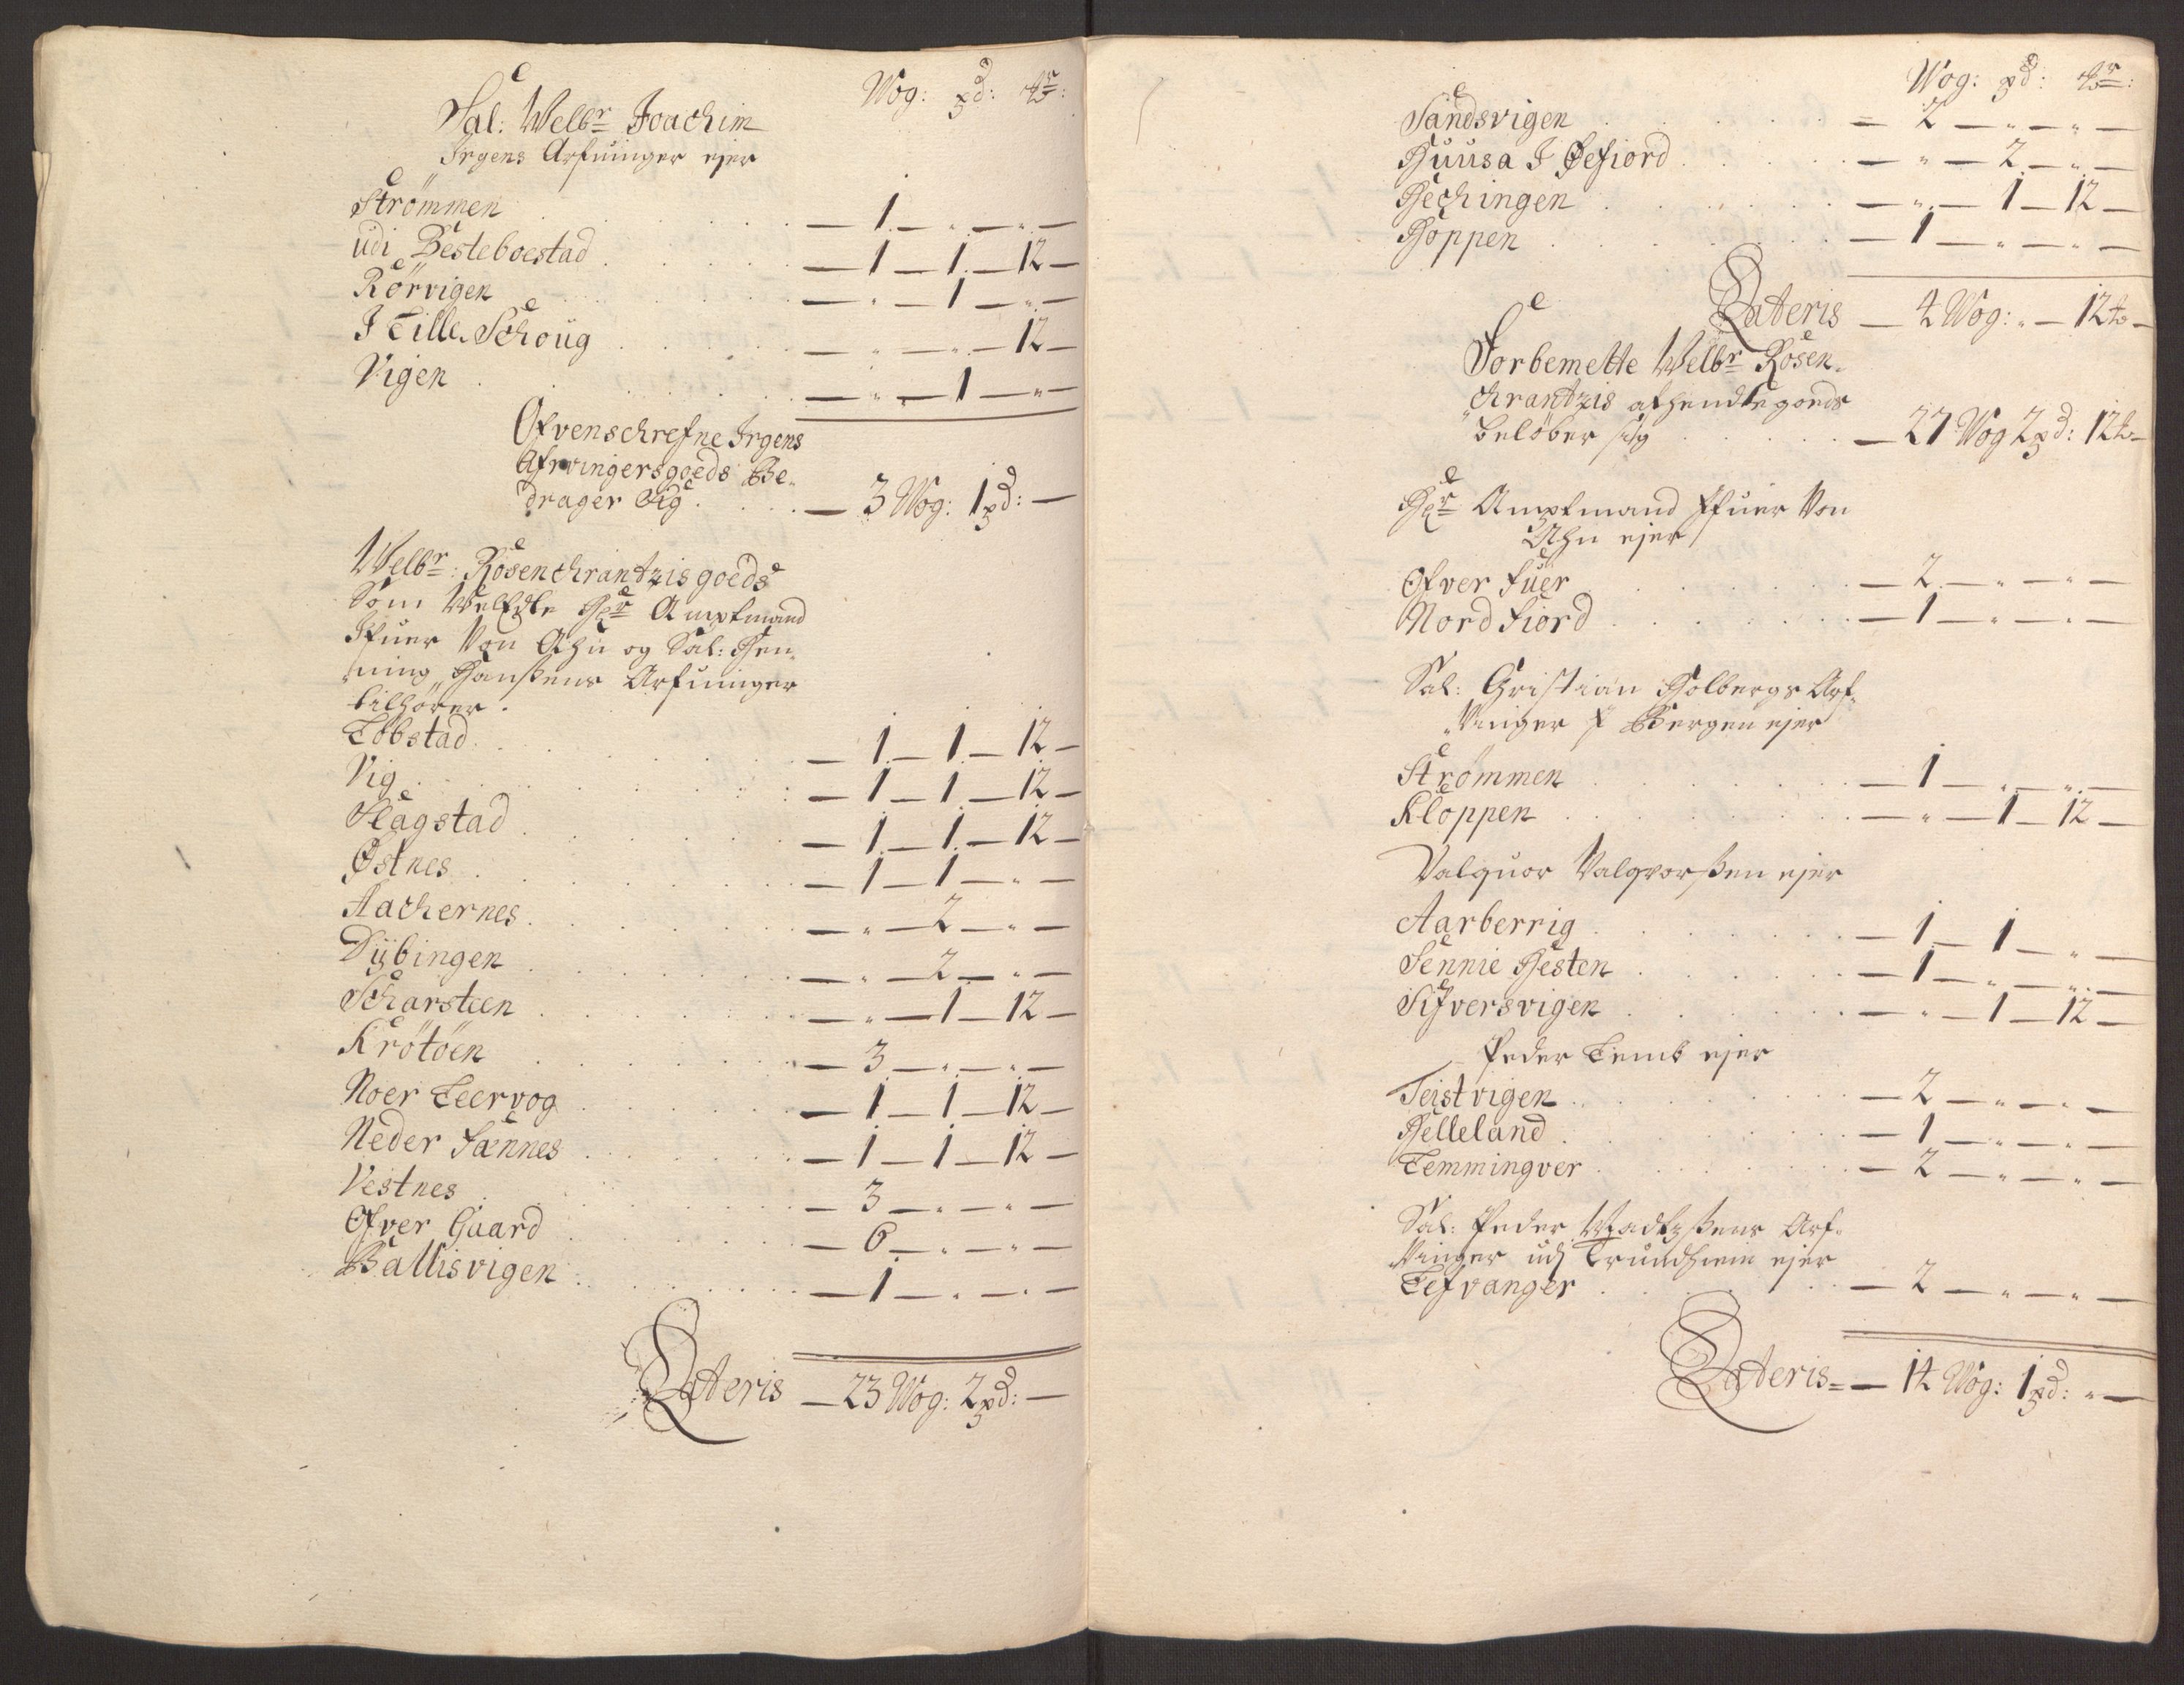 Wog: pd: mr:
Sal: Welbr Joachim
Irgens Arfvinger ejer
Strömmen — 1 — " — " —
udi Besteboestad — 1 — 1 — 12 —
Rörvigen — " — 1 — " —
J Lille Schoug — " — " — 12 —
Vigen — " — 1 — " —
Ofvenschrefne Irgens
Afrvingersgoeds Be-
drager Sig — 3 Wog: 1 pd: —
Welbr: Rosenchrantzis goeds
Som Welbdle Hr Amptmand
Ifuer Von Ahn og Sal: Hen-
ning Hansens Arfvinger
tilhörer.
Tobstad — 1 — 1 — 12 —
Vig — 1 — 1 — 12 —
Flagstad — 1 — 1 — 12 —
Østnes — 1 — 1 — " —
Aachernes — " — 2 — " —
Dybingen — " — 2 — " —
Scharsteen — " — 1 — 12 —
Krötöen — 3 — " — " —
Noer Leervog — 1 — 1 — 12 —
Neder Sannes — 1 — 1 — 12 —
Vestnes — 3 — " — " —
Ofver Gaard — 6 — " — " —
Ballisvigen — 1 — " — " —
Lateris — 23 Wog: 2 pd: —
Wog: pd: mr:
Sandsvigen — 2 — " — " —
Huusa J Øefiord — " — 2 — " —
Hechingen — " — 1 — 12 —
Hoppen — 1 — " — " —
Lateris — 4 Wog: " — 12 mr —
Forbemelte Welbr Rosen-
chrantzis afhendte goeds
belöber sig — 27 Wog 2 pd: 12 mr —
Hr Amptmand Ifuer Von
Ahn ejer
Ofver Suer — 2 — " — " —
Nord Fiord — 1 — " — " —
Sal: Christian Holbergs Arf-
vinger J Bergen ejer
Strömmen — 1 — " — " —
Kloppen — " — 1 — 12 —
Valquor Valqvorsen ejer
Aarberrig — 1 — 1 — " —
Sennie Hesten — 1 — " — " —
Sifversvigen — " — 1 — 12 —
Peder Lemb ejer
Teistvigen — 2 — " — " —
Helleland — 1 — " — " —
Temmingver — 2 — " — " —
Sal: Peder Madtzsens Arf-
vinger udj Trundhiem ejer
Lefvanger — 2 — " — " —
Lateris — 14 Wog: 1 pd: " —